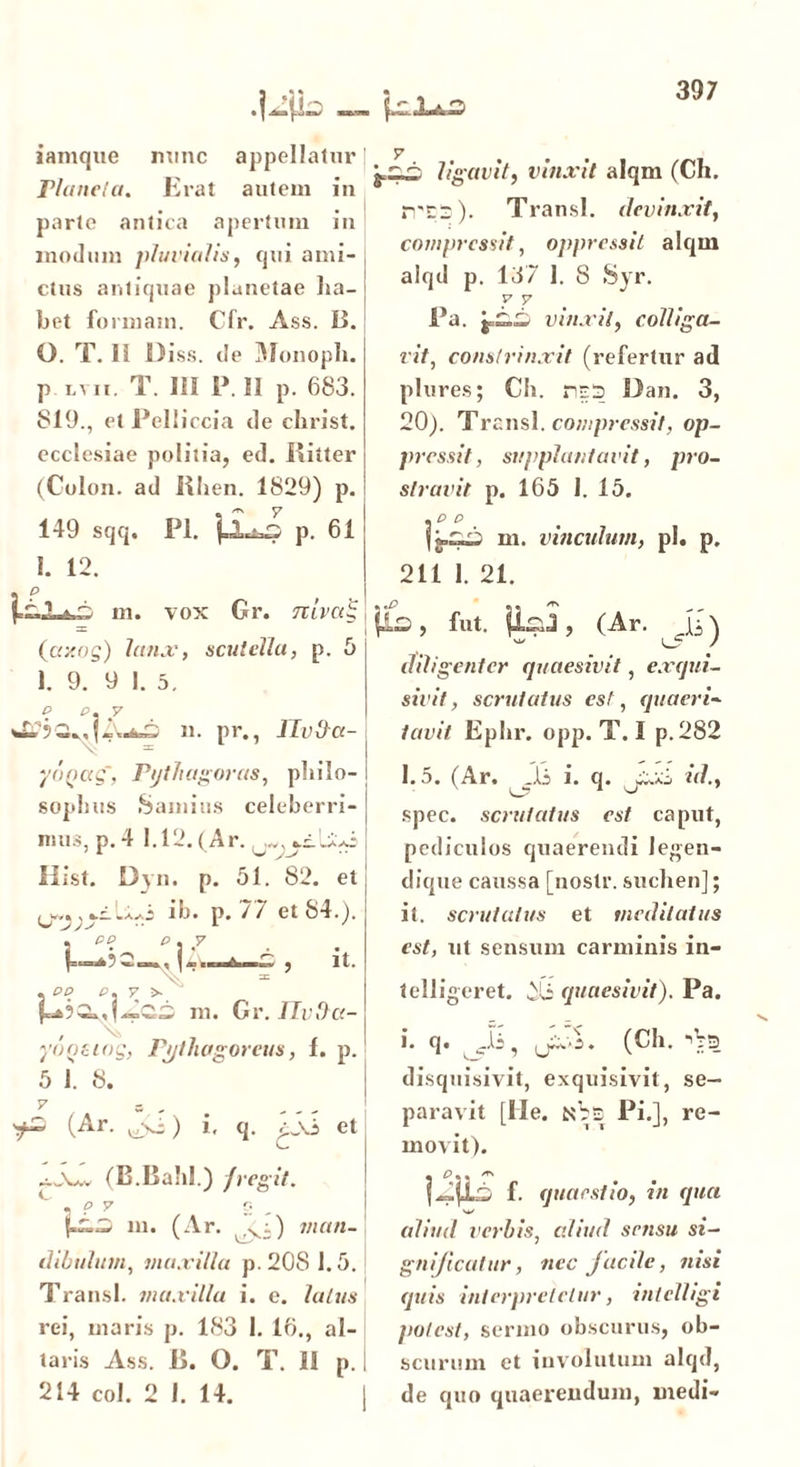 397
iamque nunc appellatur
Planeta. Erat autem in
parte antica apertum in
modum pluvialis, qui ami-
ctus antiquae planetae ha-
bet formam. Cfr. Ass. B.
O. T. II Diss. de Monoph.
p. LVII. T. III P. II p. 683.
819., et Pelliccia de christ.
ecclesiae politia, ed. Ritter
(Colon. ad Rhen. 1829) p.
149 sqq. Pl. p. 61
l. 12.
ܦܝܢܟܐ m. vox Gr. πίναξ
(αxος) lanx, scutella, p. 5
l. 9. 9 l. 5.
n. pr., Πυθα-
γόρας, Pythagoras, philo-
sophus Samius celeberri-
mus, p. 4 l.12. (Ar. فيثاغورس
Hist. Dyn. p. 51. 82. et
فيثاغورس ib. p. 77 et 84.).
, it.
m. Gr. Πυθα-
γόρειος, Pythagoreus, f. p.
5 l. 8.
ܦܟ (Ar. فك) i. q. et
(B.Bahl.) fregit.
ܦܟܐ m. (Ar. فك) man-
dibulum, maxilla p. 208 l. 5.
Transl. maxilla i. e. latus
rei, maris p. 183 l. 16., al-
taris Ass. B. O. T. II p.
214 col. 2 l. 14.
ܦܟܪ ligavit, vinxit alqm (Ch.
). Transl. devinxit,
compressit, oppressit alqm
alqd p. 137 l. 8 Syr.
Pa. ܦܟܪ vinxit, colliga-
vit, constrinxit (refertur ad
plures; Ch. Dan. 3,
20). Transl. compressit, op-
pressit, supplantavit, pro-
stravit p. 165 l. 15.
ܦܟܪܐ m. vinculum, pl. p.
211 l. 21.
ܦܠܐ, fut. ܢܦܠܐ, (Ar. فلى)
diligenter quaesivit, exqui-
sivit, scrutatus est, quaeri-
tavit Ephr. opp. T. I p. 282
l. 5. (Ar. فلى i. q. id.,
spec. scrutatus est caput,
pediculos quaerendi legen-
dique caussa [nostr. suchen];
it. scrutatus et meditatus
est, ut sensum carminis in-
telligeret. quaesivit). Pa.
i. q. فلى, . (Ch. פלי
disquisivit, exquisivit, se-
paravit [He. פלא Pi.], re-
movit).
ܦܠܐܬܐ f. quaestio, in qua
aliud verbis, aliud sensu si-
gnificatur, nec facile, nisi
quis interpretetur, intelligi
potest, sermo obscurus, ob-
scurum et involutum alqd,
de quo quaerendum, medi-